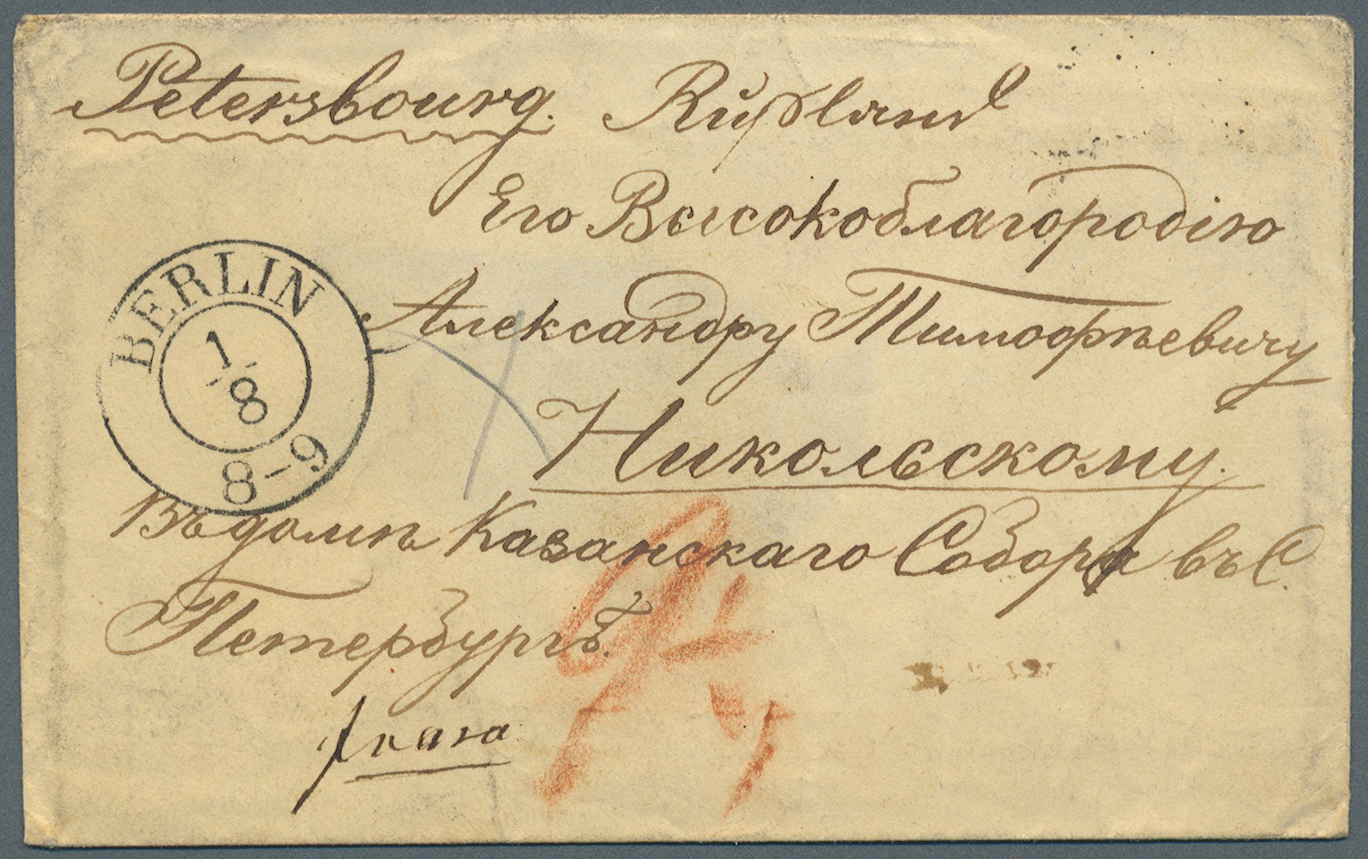 Petersbourg. Rußland
Его Высокоблагородію
Александру Тимофѣевичу
Никольскому.
BERLIN
1/8
8-9
Въ домѣ Казанскаго Собора въ С.
Петербургъ.